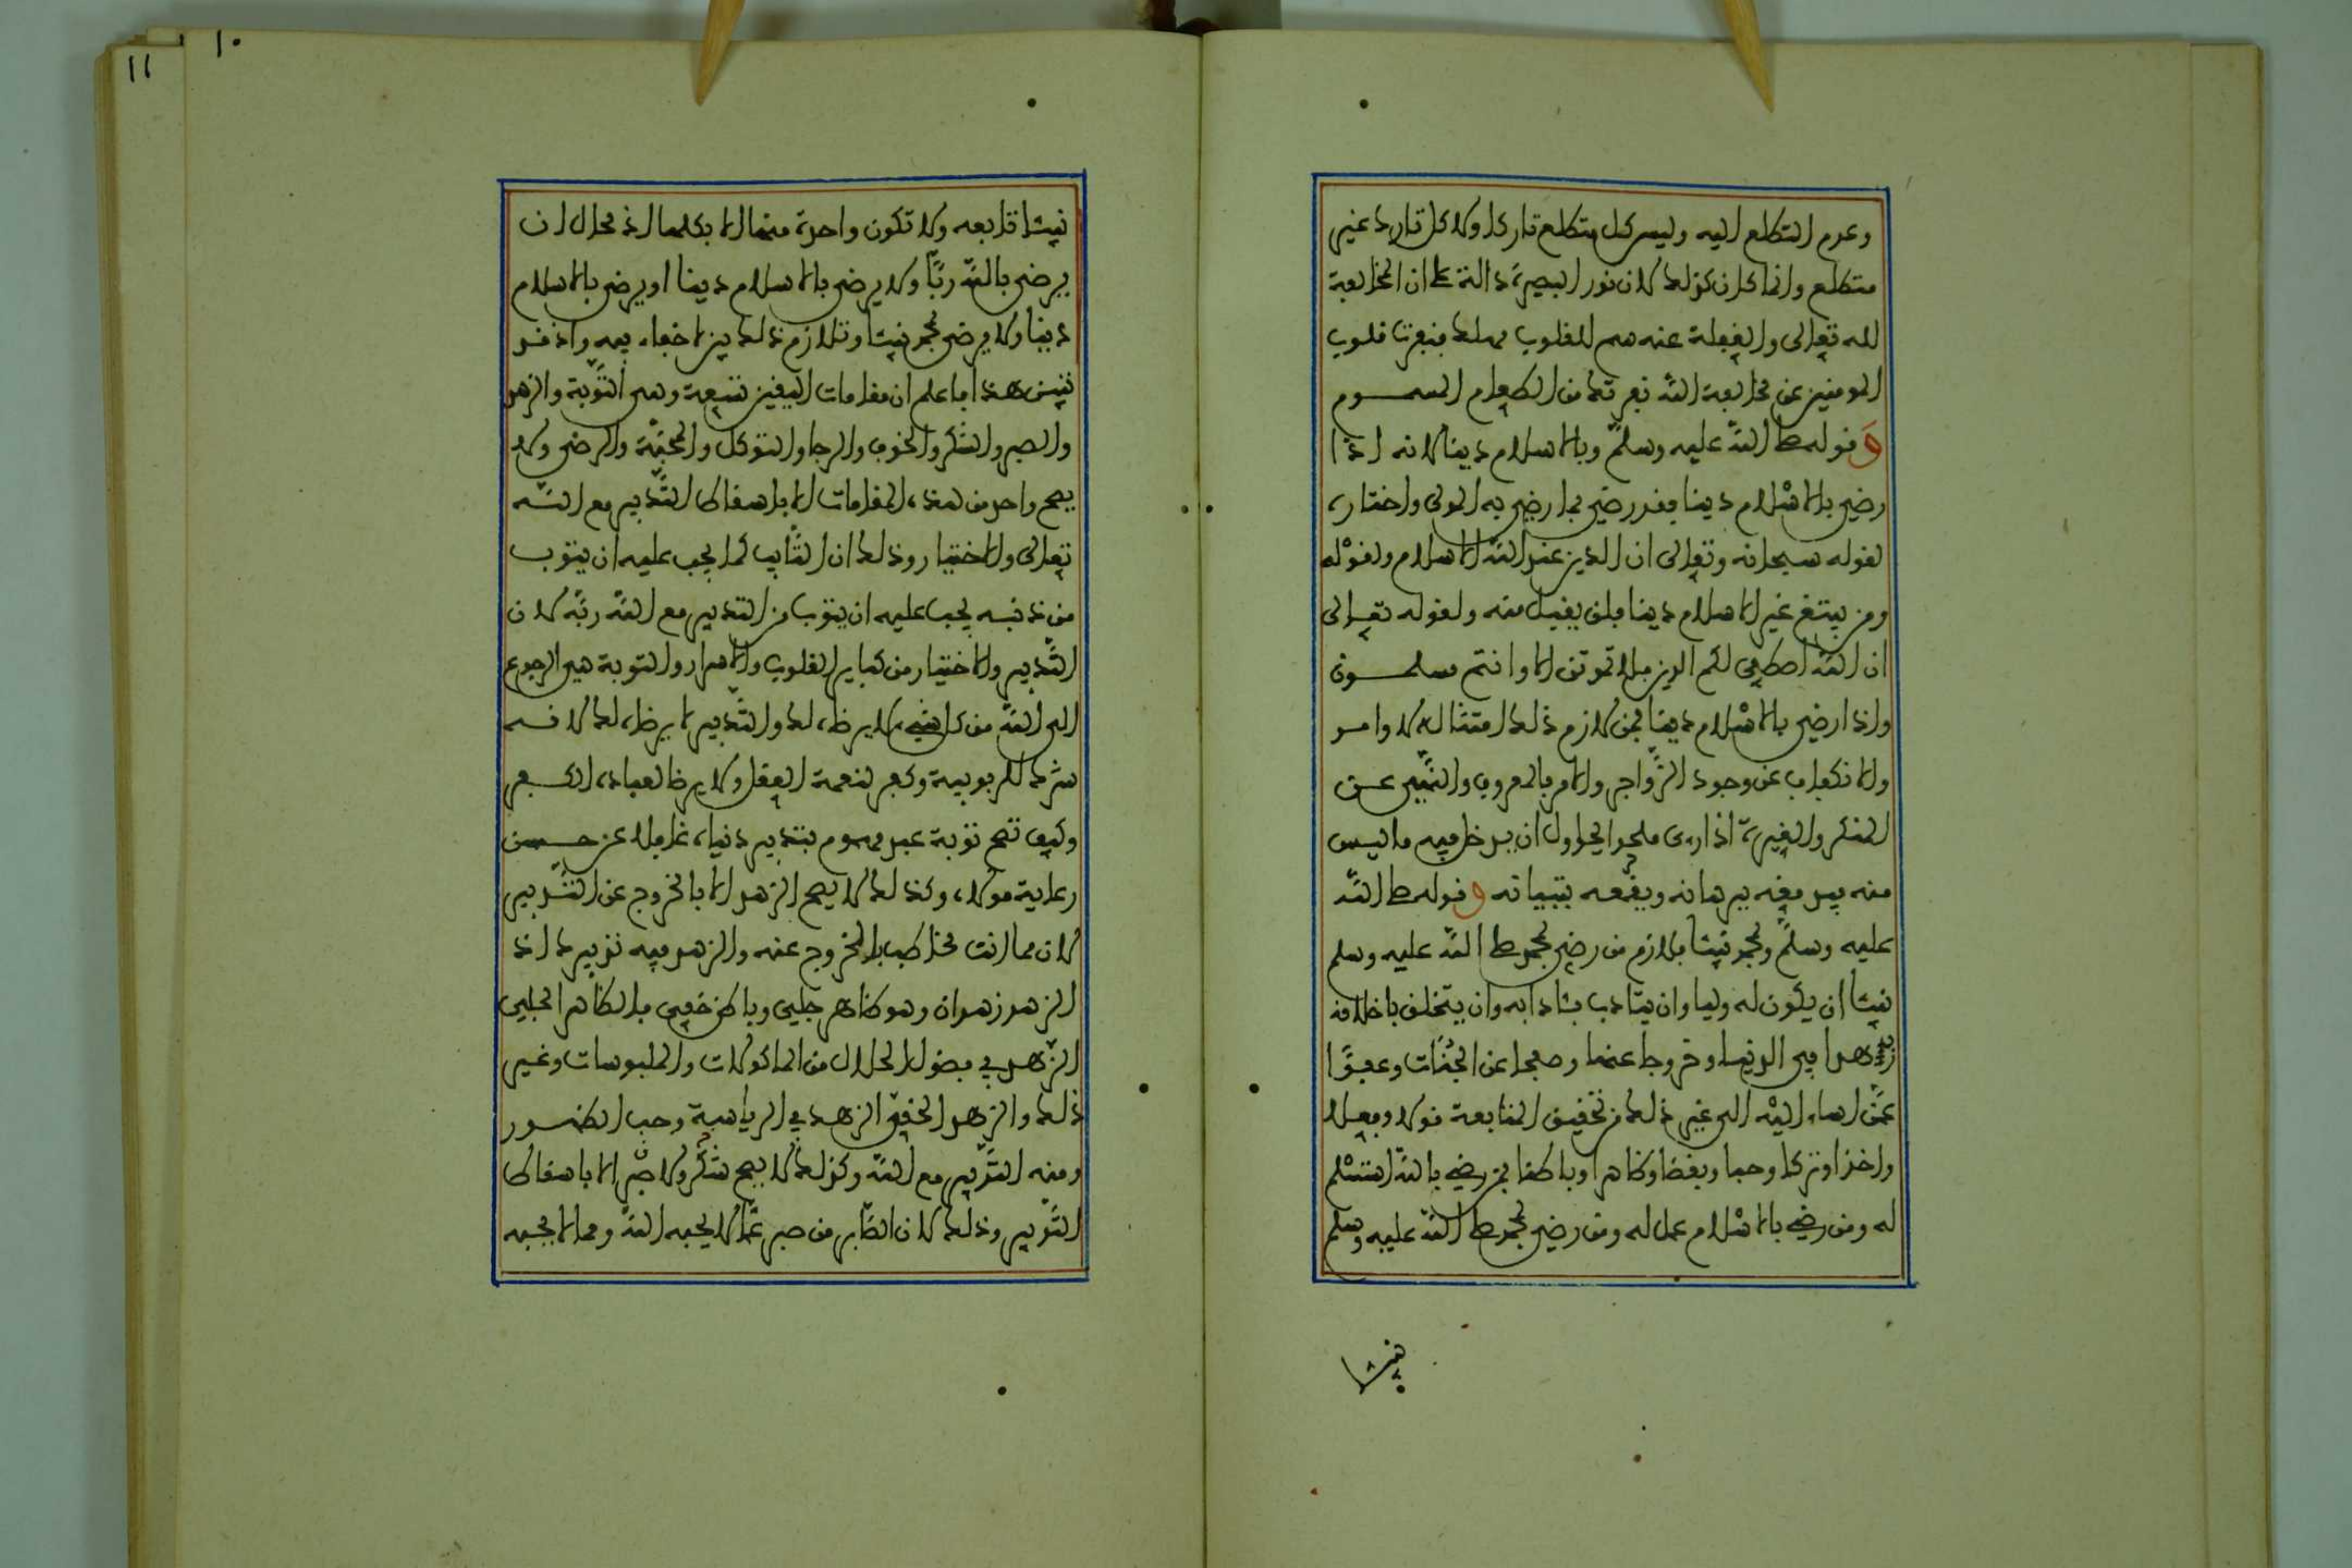 وعدم التطلع اليه وليس كل متطلع تاركا ولا كل تارك غير
متطلع وانما كان كذلك لان نور البصيرة دالة على ان المخالفة
لله تعالى والغفلة عنه سم للقلوب مهلك فنفرت قلوب
المومنين عن مخالفة الله نفرتك من الطعام المسموم
وقوله صلى الله عليه وسلم وبالاسلام دينا لانه اذا
رضي بالاسلام دينا فقد رضي بما رضي به المولى واختاره
لقوله سبحانه وتعالى ان الدين عند الله الاسلام ولقوله
ومن يبتغ غير الاسلام دينا فلن يقبل منه ولقوله تعالى
ان الله اصطفى لكم الدين فلا تموتن الا وانتم مسلمون
واذا رضي بالاسلام دينا فمن لازم ذلك امتثال الاوامر
والانكفاف عن وجود الزواجر والامر بالمعروف والنهي عن
المنكر والغيرة اذا رءى ملحدا يحاول ان يدخل فيه ما ليس
منه فيدمغه ببرهانه ويقمعه بتبيانه وقوله صلى الله
عليه وسلم وبمحمد نبيئا فلازم من رضي بمحمد صلى الله عليه وسلم
نبيئا ان يكون له وليا وان يتادب بئادابه وان يتخلق باخلاقه
زهدا في الدنيا وخروجا عنها وصفحا عن الجنات وعفوا
عمن اساء اليه الى غير ذلك من تحقيق المتابعة قولا وفعلا
واخذا وتركا وحبا وبغضا وظاهرا وباطنا فمن رضي بالله استسلم
له ومن رضي بالاسلام عمل له ومن رضي بمحمد صلى الله عليه وسلم
نبيئا
١٠
١١
نبيئا تابعه ولا تكون واحدة منها الا بكلها اذ محال ان
يرضى بالله ربا ولا يرضى بالاسلام دينا او يرضى بالاسلام
دينا ولا يرضى بمحمد نبيئا وتلازم ذلك بين لا خفاء فيه واذ قد
تبين هذا فاعلم ان مقامات اليقين تسعة وهي التوبة والزهد
والصبر والشكر والخوف والرجا والتوكل والمحبة والرضى ولا
يصح واحد من هذه المقامات الا باسقاط التدبير مع الله
تعالى والاختيار وذلك ان التايب كما يجب عليه ان يتوب
من ذنبه يجب عليه ان يتوب من التدبير مع الله ربه لان
التدبير والاختيار من كباير القلوب والاسرار والتوبة هي الرجوع
الى الله من كل شيء لا يرضاه لك والتدبير لا يرضاه لك لانه
شرك للربوبية وكفر لنعمة العقل ولا يرضا لعباده الكفر
وكيف تصح توبة عبد مهموم بتدبير دنياه غافلا عن حسن
رعاية مولاه وكذلك لا يصح الزهد الا بالخروج عن التدبير
لان مما انت مخاطب بالخروج عنه والزهد فيه تدبيرك اذ
الزهد زهدان وهو ظاهر جلي وباطن خفي فالظاهر الجلي
الزهد في فضول الحلال من الماكولات والملبوسات وغير
ذلك والزهد الخفي الزهد في الرياسة وحب الظهور
ومنه التدبير مع الله وكذلك لا يصح شكر ولا صبر الا باسقاط
التدبير وذلك لان الصابر من صبر عما لا يحبه الله ومما لا يحبه